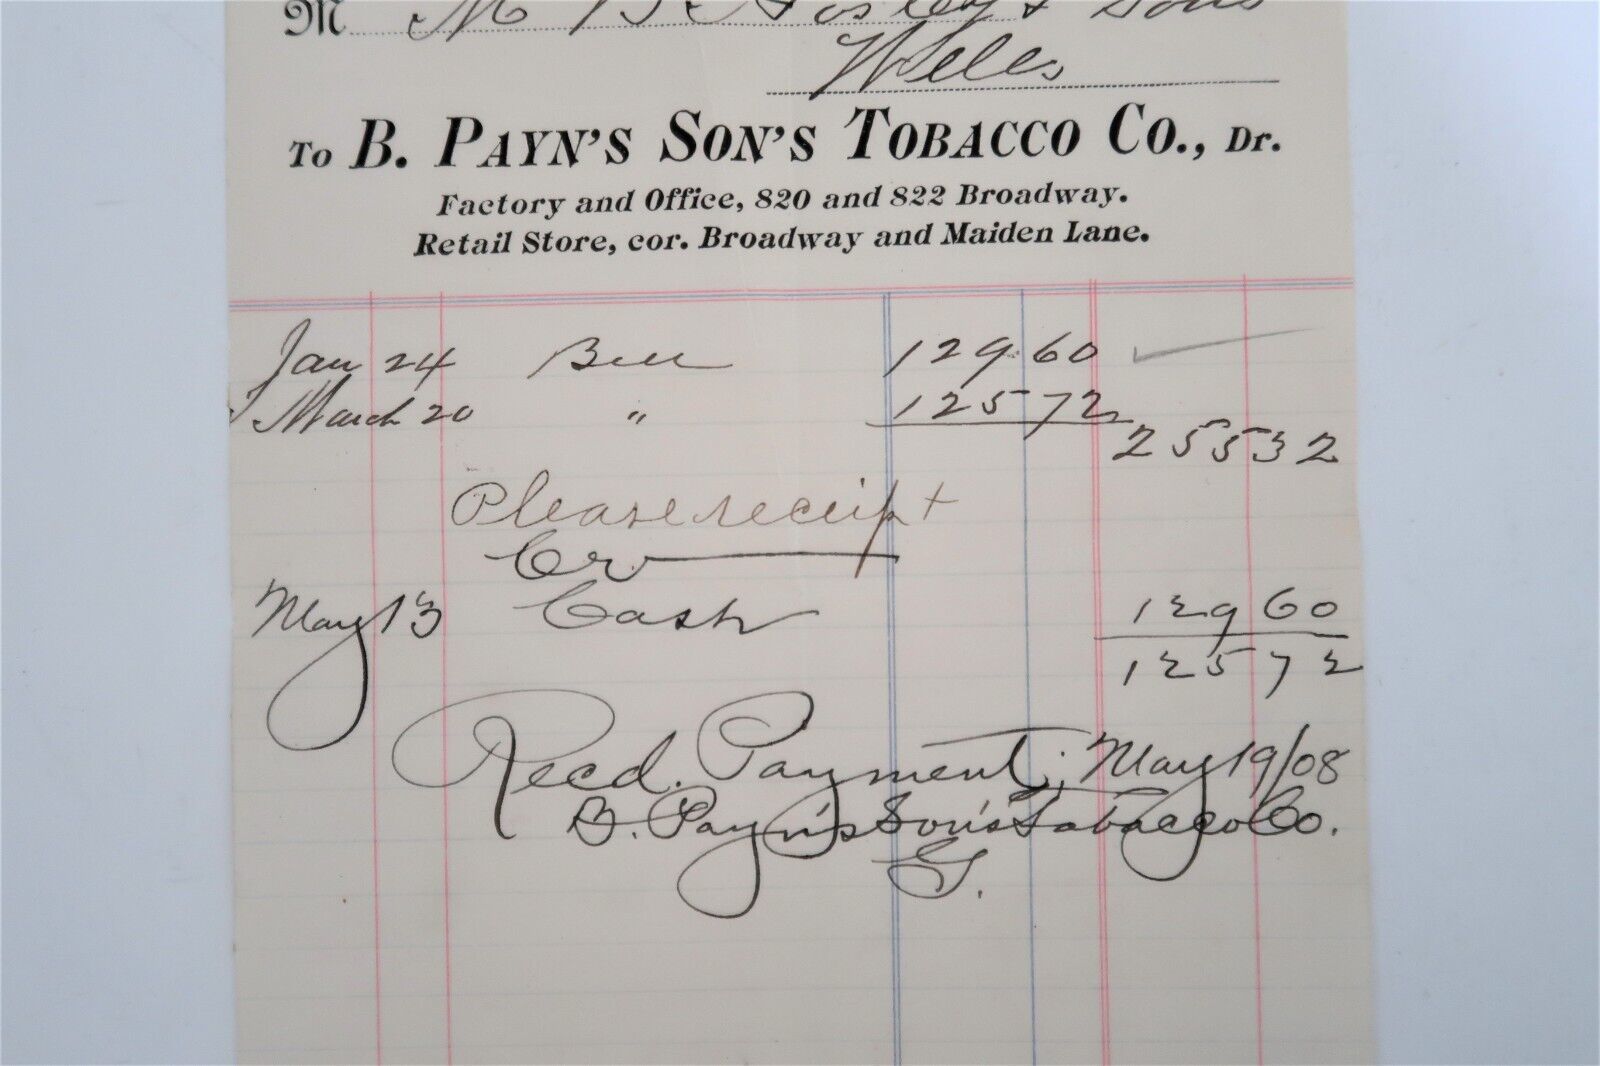 M M B & Sons
Wells
To B. Payn's Son's Tobacco Co., Dr.
Factory and Office, 820 and 822 Broadway.
Retail Store, cor. Broadway and Maiden Lane.
Jan 24 Bill 129 60
March 20 " 125 72
255 32
Please receipt
Cr
May 13 Cash 129 60
125 72
Recd. Payment, May 19/08
B. Payn's Son's Tobacco Co.
G.